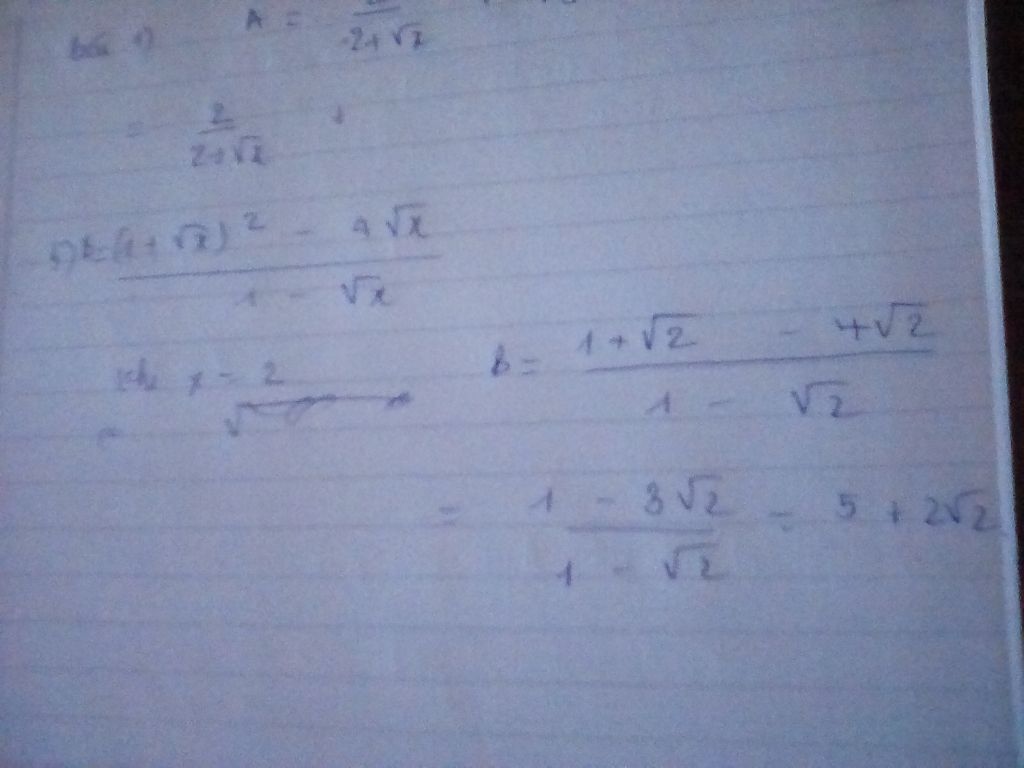 bài 1) A = 2+√x
= 2/(2+√x) +
b) B = ((1 + √x)² - 4√x)/(1 - √x)
x = 2 B = (1+√2 - 4√2)/(1 - √2)
= (1 - 3√2)/(1 - √2) = 5 + 2√2